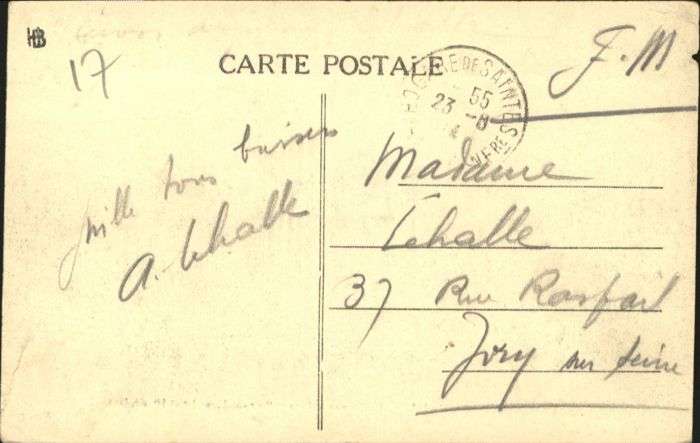 17
CARTE POSTALE
F.M
DE SAINTES
55
23 -8
mille bons baisers
A. Lehalle
Madame
Lehalle
37 Rue Raspail
Ivry sur Seine